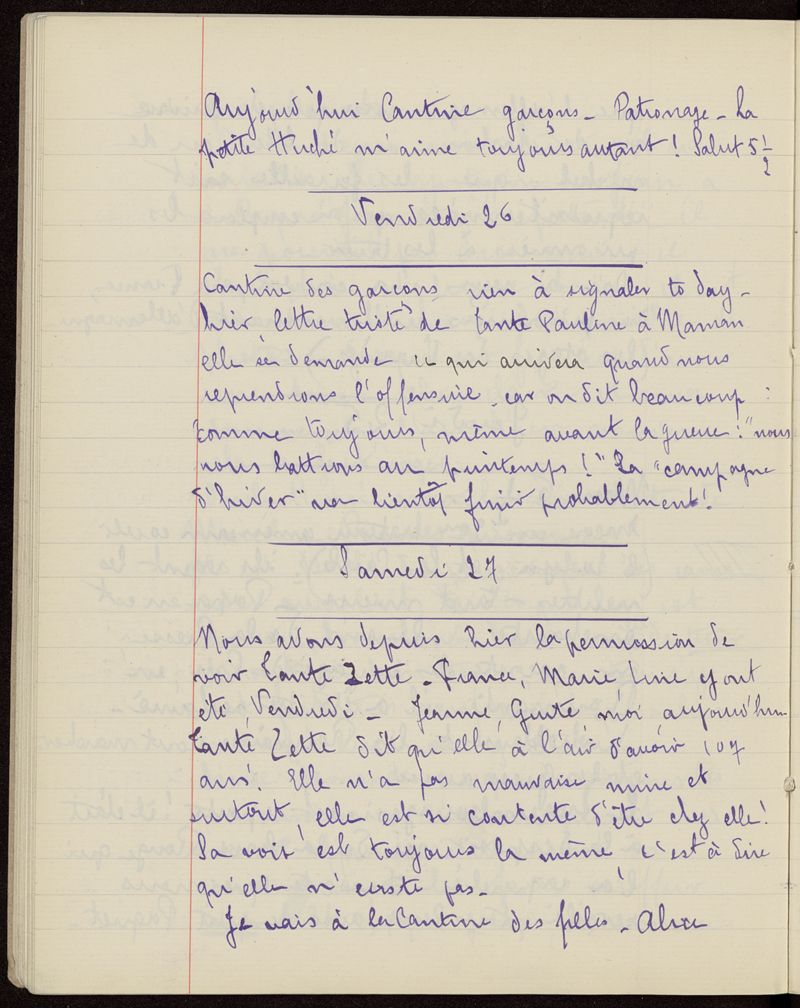 Aujourd'hui Cantine garçons - Patronage - La
petite Huché m'aime toujours autant ! Salut 5 1/2
Vendredi 26
Cantine des garçons rien à signaler to day -
hier lettre triste de tante Pauline à Maman
elle se demande ce qui arrivera quand nous
reprendrons l'offensive, car on dit beaucoup :
comme toujours, même avant la guerre : "nous
nous battrons au printemps !" La "campagne
d'hiver" va bientôt finir probablement !
Samedi 27
Nous avons depuis hier la permission de
voir tante Zette - France, Marie Line y ont
été Vendredi - Jeanne, Guite, moi aujourd'hui
tante Zette dit qu'elle à l'air d'avoir 107
ans ! Elle n'a pas mauvaise mine et
surtout elle est si contente d'être chez elle !
Sa voix est toujours la même, c'est à dire
qu'elle n'existe pas -
Je vais à la Cantine des filles - Alice